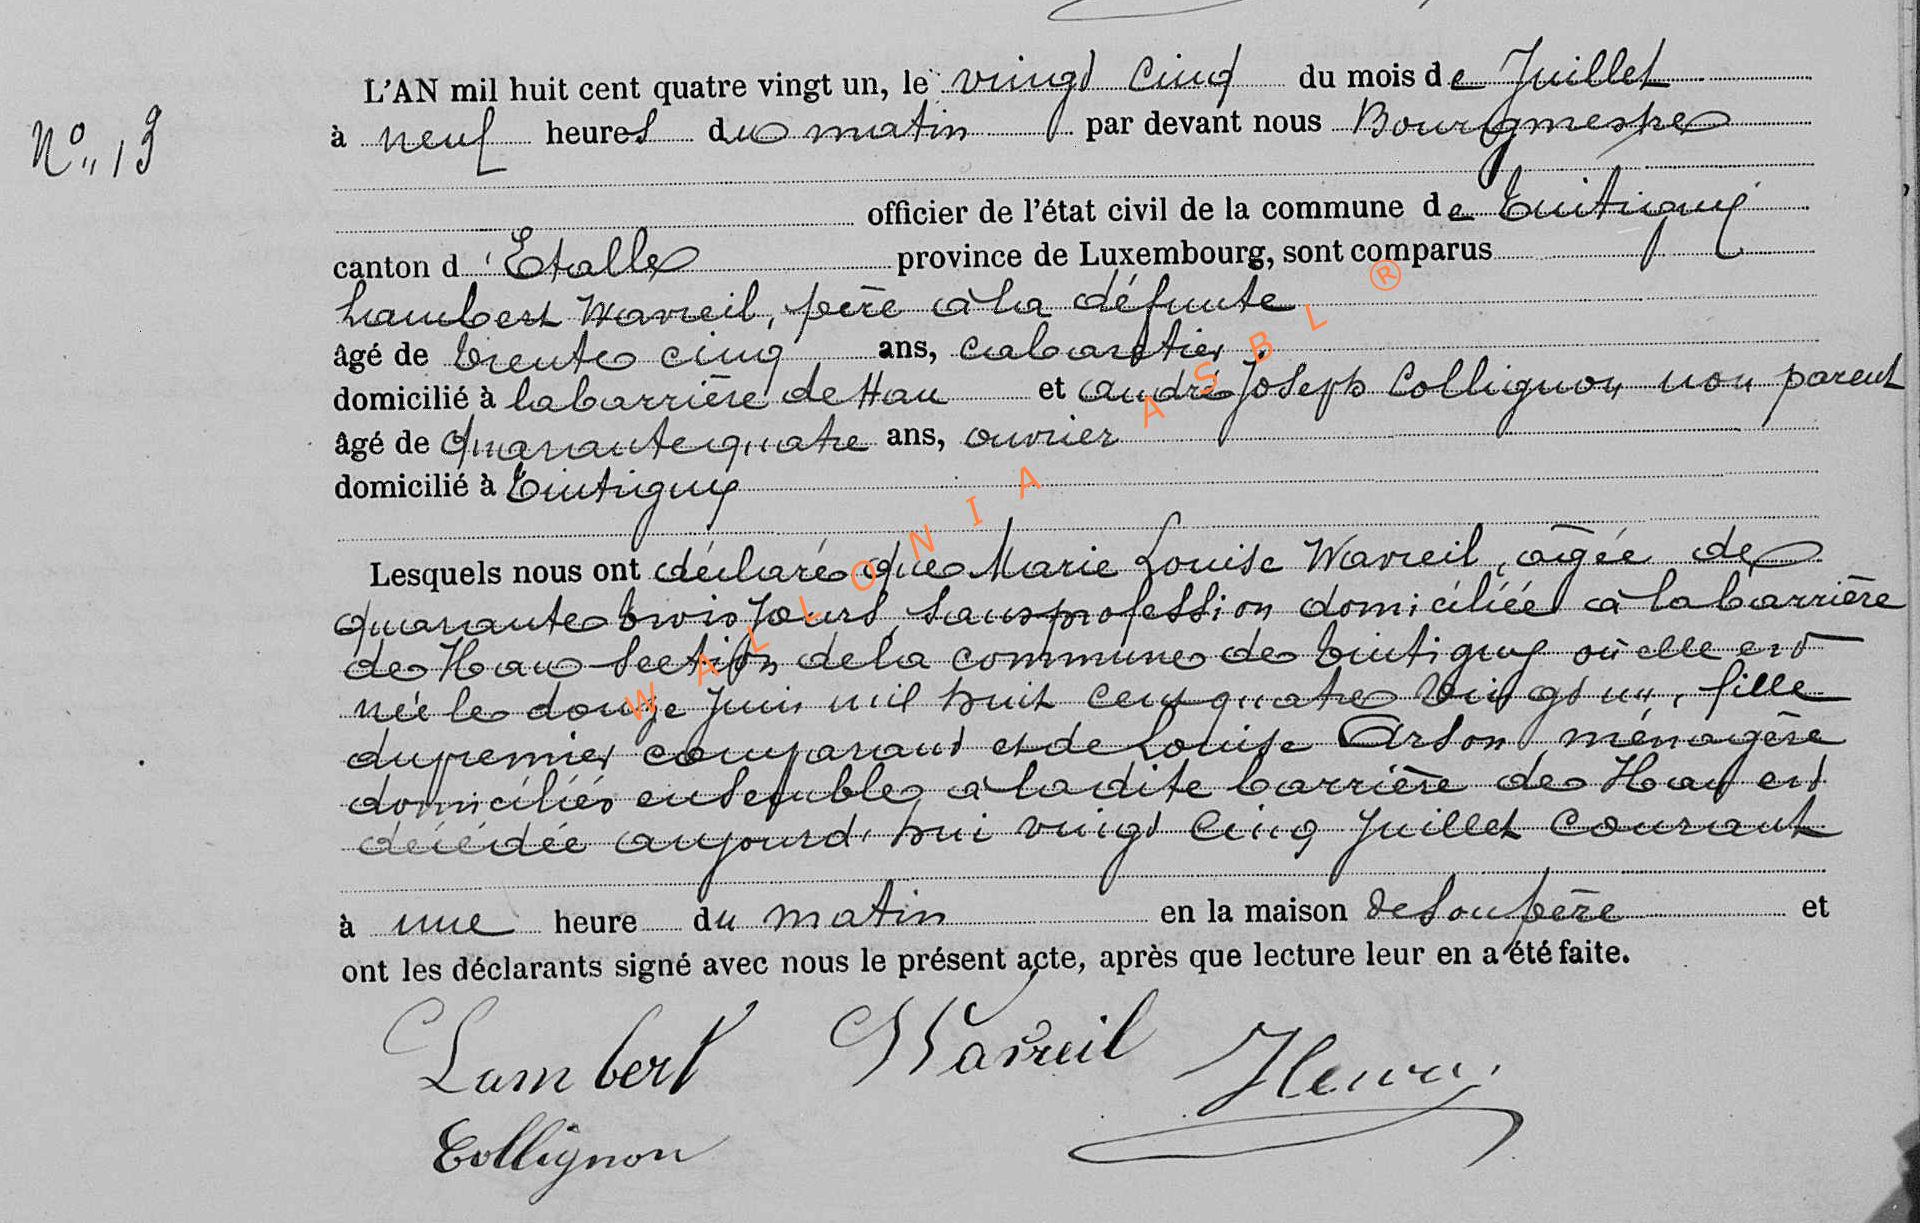 L'AN mil huit cent quatre vingt un, le vingt cinq du mois de Juillet
N° 13
à neuf heures du matin par devant nous Bourgmestre
officier de l'état civil de la commune de Tintigny
canton d'Etalle province de Luxembourg, sont comparus
Lambert Wavreil, père à la défunte
âgé de trente cinq ans, cabaretier
domicilié à la barrière de Han et andré Joseph Collignon non parent
âgé de quarante quatre ans, ouvrier
domicilié à Tintigny
Lesquels nous ont déclaré que Marie Louise Wavreil, âgée de
quarante trois jours, sans profession domiciliée à la barrière
de Han section de la commune de Tintigny où elle est
née le douze Juin mil huit cent quatre vingt un, fille
du premier comparant et de Louise Arson ménagère
domiciliés ensemble à la dite barrière de Han est
décédée aujourd'hui vingt cinq Juillet courant
à une heure du matin en la maison de son père et
ont les déclarants signé avec nous le présent acte, après que lecture leur en a été faite.
Lambert Wavreil Henry
Collignon
WALLONIA ASBL ®